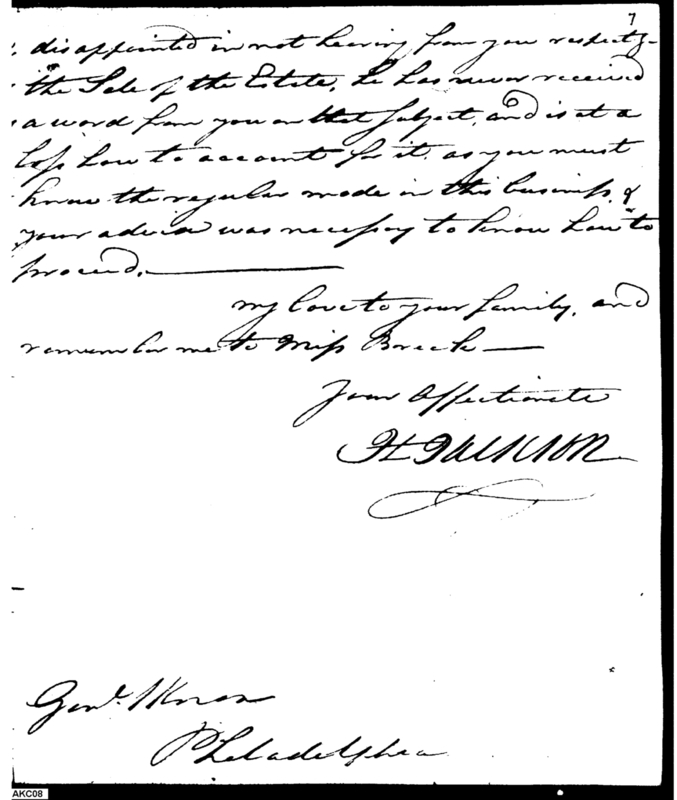 7
disappointed in not hearing from you respectg
the Sale of the Estate, he has never received
a word from you on that Subject, and is at a
loss how to account for it, as you must
know the regular mode in this business, &
your advice was necessary to know how to
proceed.
my love to your family, and
remember me to Miss Breck
Your Affectionate
H Jackson
Genl. Knox
Philadelphia
AKC08